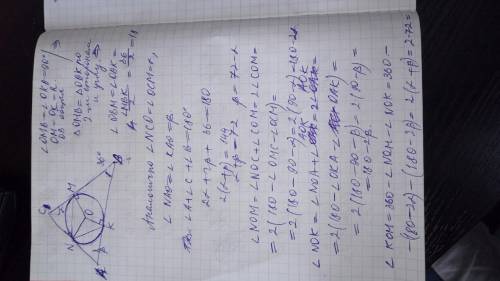 ∠OMB = ∠OKB = 90°
OM = OK = R
OB общая
=>
ΔOMB = ΔOBK по
2-м сторонам
и углу =>
∠OBM = ∠OBK =
= 36/2 = 18
C
M
36°
B
N
O
K
A
Аналогично ∠NCO = ∠OCM = α,
∠NAO = ∠KAO = β.
∠A + ∠C + ∠B = 180°
2α + 2β + 36 = 180
2(α + β) = 144
α + β = 72 β = 72 - α
∠NOM = ∠NOC + ∠COM = 2∠COM =
= 2(180 - ∠OMC - ∠OCM) =
= 2(180 - 90 - α) = 2(90 - α) = 180 - 2α
∠NOK = ∠NOA + ∠AOK = 2∠AOK =
= 2(180 - ∠OKA - ∠OAK) =
= 2(180 - 90 - β) = 2(90 - β) =
= 180 - 2β
∠KOM = 360 - ∠NOM - ∠NOK = 360 -
- (180 - 2α) - (180 - 2β) = 2(α + β) = 2·72 =